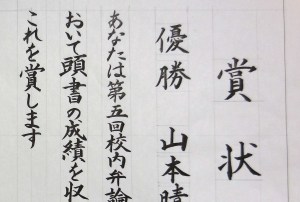 賞状
優勝 山本晴
あなたは第五回校内弁論
おいて頭書の成績を収
これを賞します